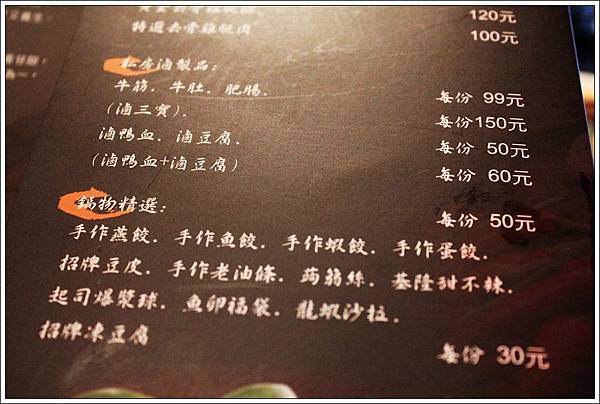 120元
特選去骨雞腿肉 100元
私房滷製品：
牛筋．牛肚．肥腸． 每份 99元
（滷三寶）． 每份150元
滷鴨血．滷豆腐． 每份 50元
（滷鴨血+滷豆腐） 每份 60元
鍋物精選： 每份 50元
手作燕餃．手作魚餃．手作蝦餃．手作蛋餃．
招牌豆皮．手作老油條．蒟蒻絲．基隆甜不辣．
起司爆漿球．魚卵福袋．龍蝦沙拉．
招牌凍豆腐 每份 30元